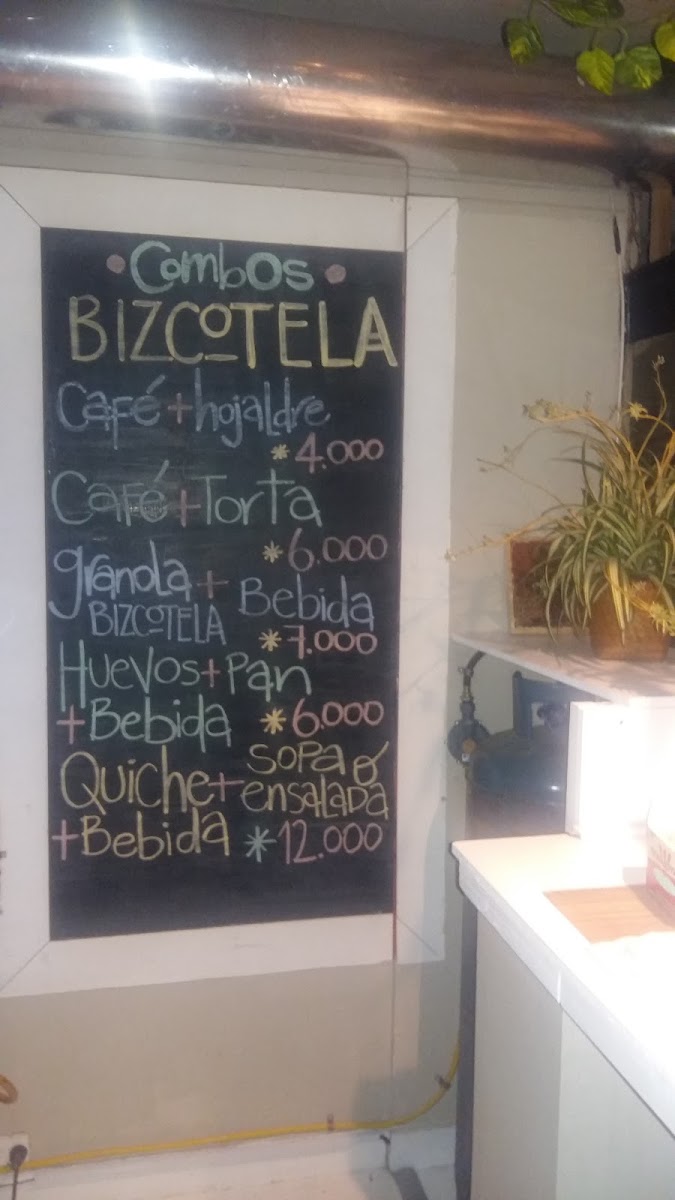 • Combos •
BIZCOTELA
Café + hojaldre
* 4.000
Café + Torta
* 6.000
granola + Bebida
BIZCOTELA * 7.000
Huevos + Pan
+ Bebida * 6.000
Quiche + sopa o ensalada
+ Bebida * 12.000